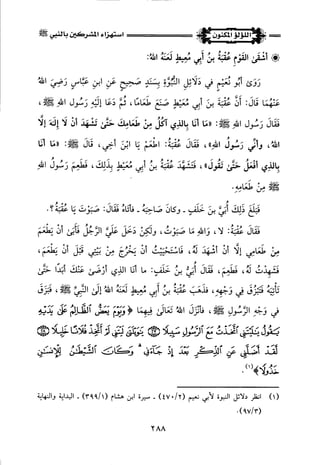 اللؤلؤ المكنون
استهزاء المشركين بالنبي ﷺ
* أشقى القوم عقبة بن أبي معيط لعنه الله:
روى أبو نعيم في دلائل النبوة بسند صحيح عن ابن عباس رضي الله
عنهما قال: أن عقبة بن أبي معيط صنع طعاما، ثم دعا إليه رسول الله ﷺ،
فقال رسول الله ﷺ: «ما أنا بالذي آكل من طعامك حتى تشهد أن لا إله إلا
الله، وأني رسول الله»، فقال عقبة: اطعم يا ابن أخي، قال ﷺ: «ما أنا
بالذي أفعل حتى تقول»، فتشهد عقبة بن أبي معيط بذلك، فطعم رسول الله
ﷺ من طعامه.
فبلغ ذلك أبي بن خلف - وكان صاحبه - فأتاه فقال: صبوت يا عقبة؟.
فقال عقبة: لا، والله ما صبوت، ولكن دخل علي الرجل فأبى أن يطعم
من طعامي إلا أن أشهد له، فاستحييت أن يخرج من بيتي قبل أن يطعم،
فشهدت له، فطعم، فقال أبي بن خلف: ما أنا الذي أرضى عنك أبدا حتى
تأتيه فتبزق في وجهه، فذهب عقبة بن أبي معيط لعنه الله إلى النبي ﷺ، فبزق
في وجه الرسول ﷺ، فأنزل الله تعالى فيهما ﴿ويوم يعض الظالم على يديه
يقول يليتني اتخذت مع الرسول سبيلا ۝ يويلتى ليتني لم أتخذ فلانا خليلا ۝
لقد أضلني عن الذكر بعد إذ جاءني وكان الشيطن للإنسن
خذولا﴾(١).
(١) انظر دلائل النبوة لأبي نعيم (٤٧٠/٢) - سيرة ابن هشام (٣٩٩/١) - البداية والنهاية
(٩٧/٣).
٢٨٨